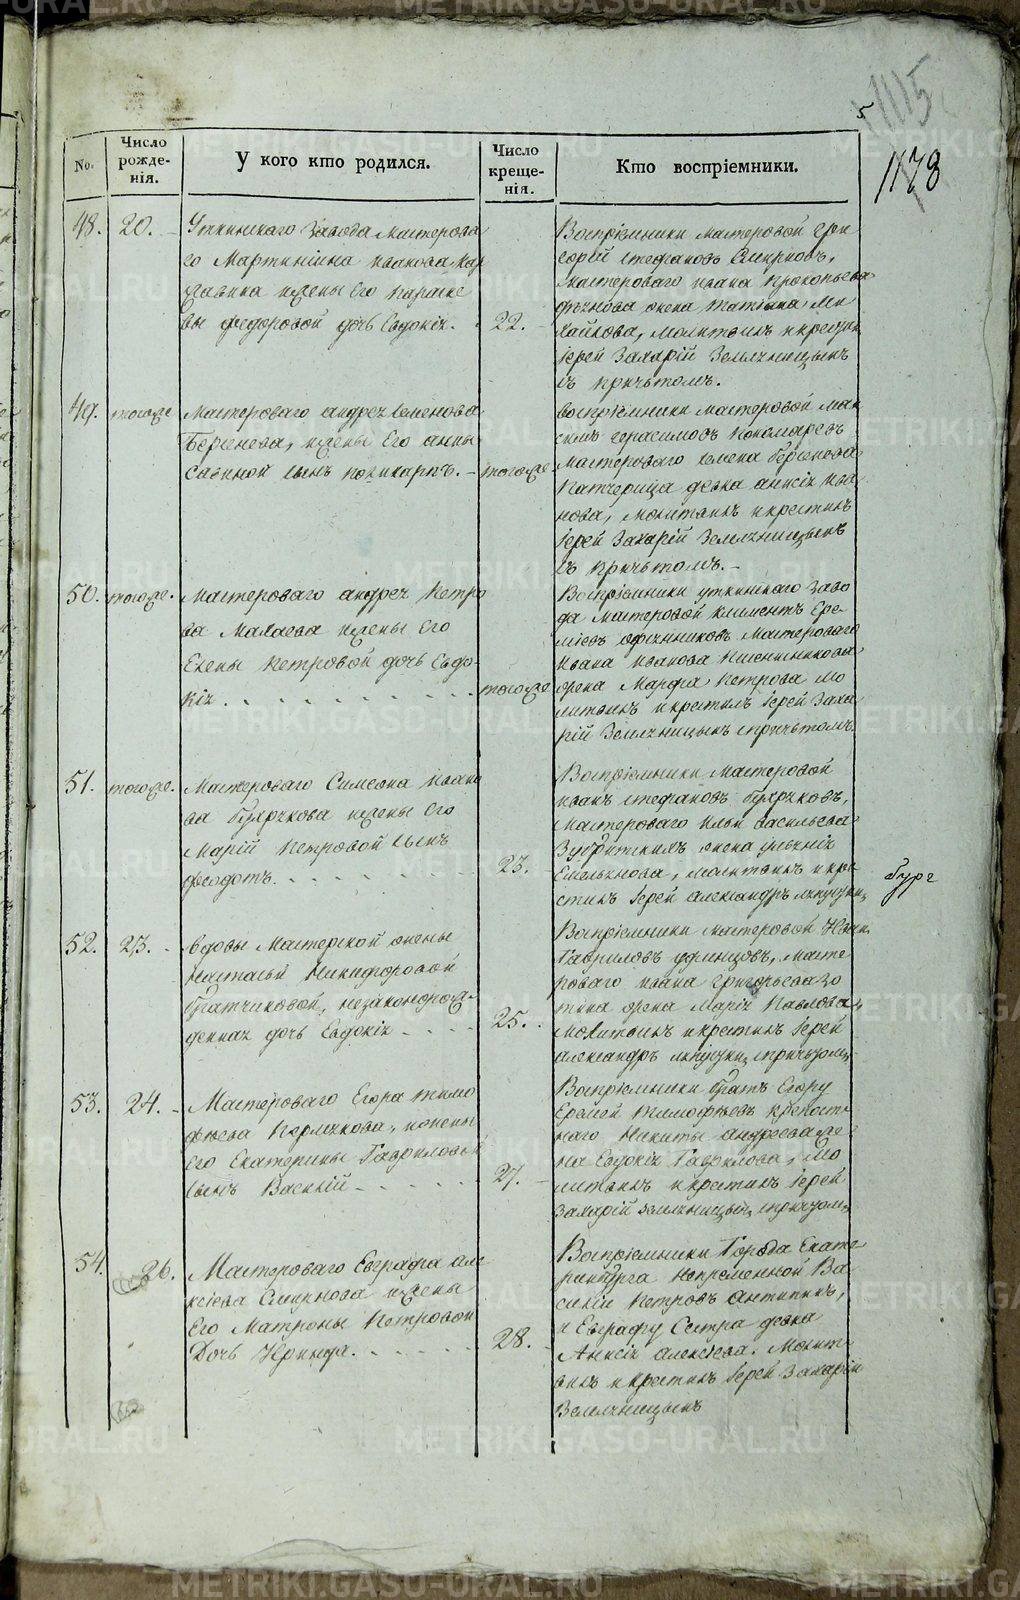 5
1115
1178
No.
Число рожде-нія.
У кого кто родился.
Число креще-нія.
Кто воспріемники.
48. 20.
Уткинскаго завода мастерова
го Мартиніана иванова
жены Его Параске
вы федоровой дочь Евдокія. 22.
Воспріемники мастеровой Гри
горій стефановъ Смирновъ,
мастероваго ивана прокопьева
жена татіана Ми
хайлова, молитвилъ и крестилъ
іерей Захарій Земляницынъ
съ причьтомъ.
49. тогоже
Мастероваго андрея семенова
Берсенева, жены Его анны
Савиной сынъ поликарпъ. - тогоже
воспріемники мастеровой Мак
симъ герасимовъ пономаревъ
мастероваго семена берсенева
Падчерица девка анисія ива
нова, молитвилъ и крестилъ
іерей Захарій Земляницынъ
съ причьтомъ. -
50. тогоже.
Мастероваго андрея Петро
ва Махаева жены Его
Елены Петровой дочь Евдо-
кія. тогоже
Воспріемники уткинскаго заво
да мастеровой климентъ Ере-
меевъ мастероваго
ивана иванова
жена Марфа Петрова мо
литвилъ и крестилъ іерей Заха
рій Земляницынъ спричьтомъ.
51. тогоже.
Мастероваго Симеона ивано
ва Бурячкова жены Его
Маріи Петровой сынъ
феодотъ. 23.
Воспріемники Мастеровой
иванъ стефановъ Бурячковъ,
Мастероваго ильи васильева
жена
Емельянова, молитвилъ и кре
стилъ іерей александръ
бург
52. 23. -
вдовы Мастерской жены
Настасьи Никифоровой
Братчиковой, незаконорож-
денная дочь Евдокія 25.
Воспріемники мастеровой
Гавриловъ, масте
роваго ивана Григорьева
жена Марія Павлова,
Молитвилъ и крестилъ іерей
александръ спричтомъ
53. 24. -
Мастероваго Егора тимо
феева Пермякова, жены
Его Екатерины Гавриловой
сынъ Василій 27.
Воспріемники братъ Егору
Еремей тимофеевъ крепост
наго Никиты андреева же
на Евдокія Гаврилова, Мо
литвилъ и крестилъ іерей
Захарій земляницынъ спричтомъ
54. 26.
Мастероваго Евграфа але
ксіева Смирнова жены
Его Матроны Петровой
Дочь Ирина. 28.
Воспріемники Города Екате
ринбурга Непременной Ва
силій Петровъ антипинъ,
и Евграфу Сестра девка
Анисія алексіева. Молит
вилъ и крестилъ іерей Захарій
Земляницынъ
METRIKI.GASO-URAL.RU